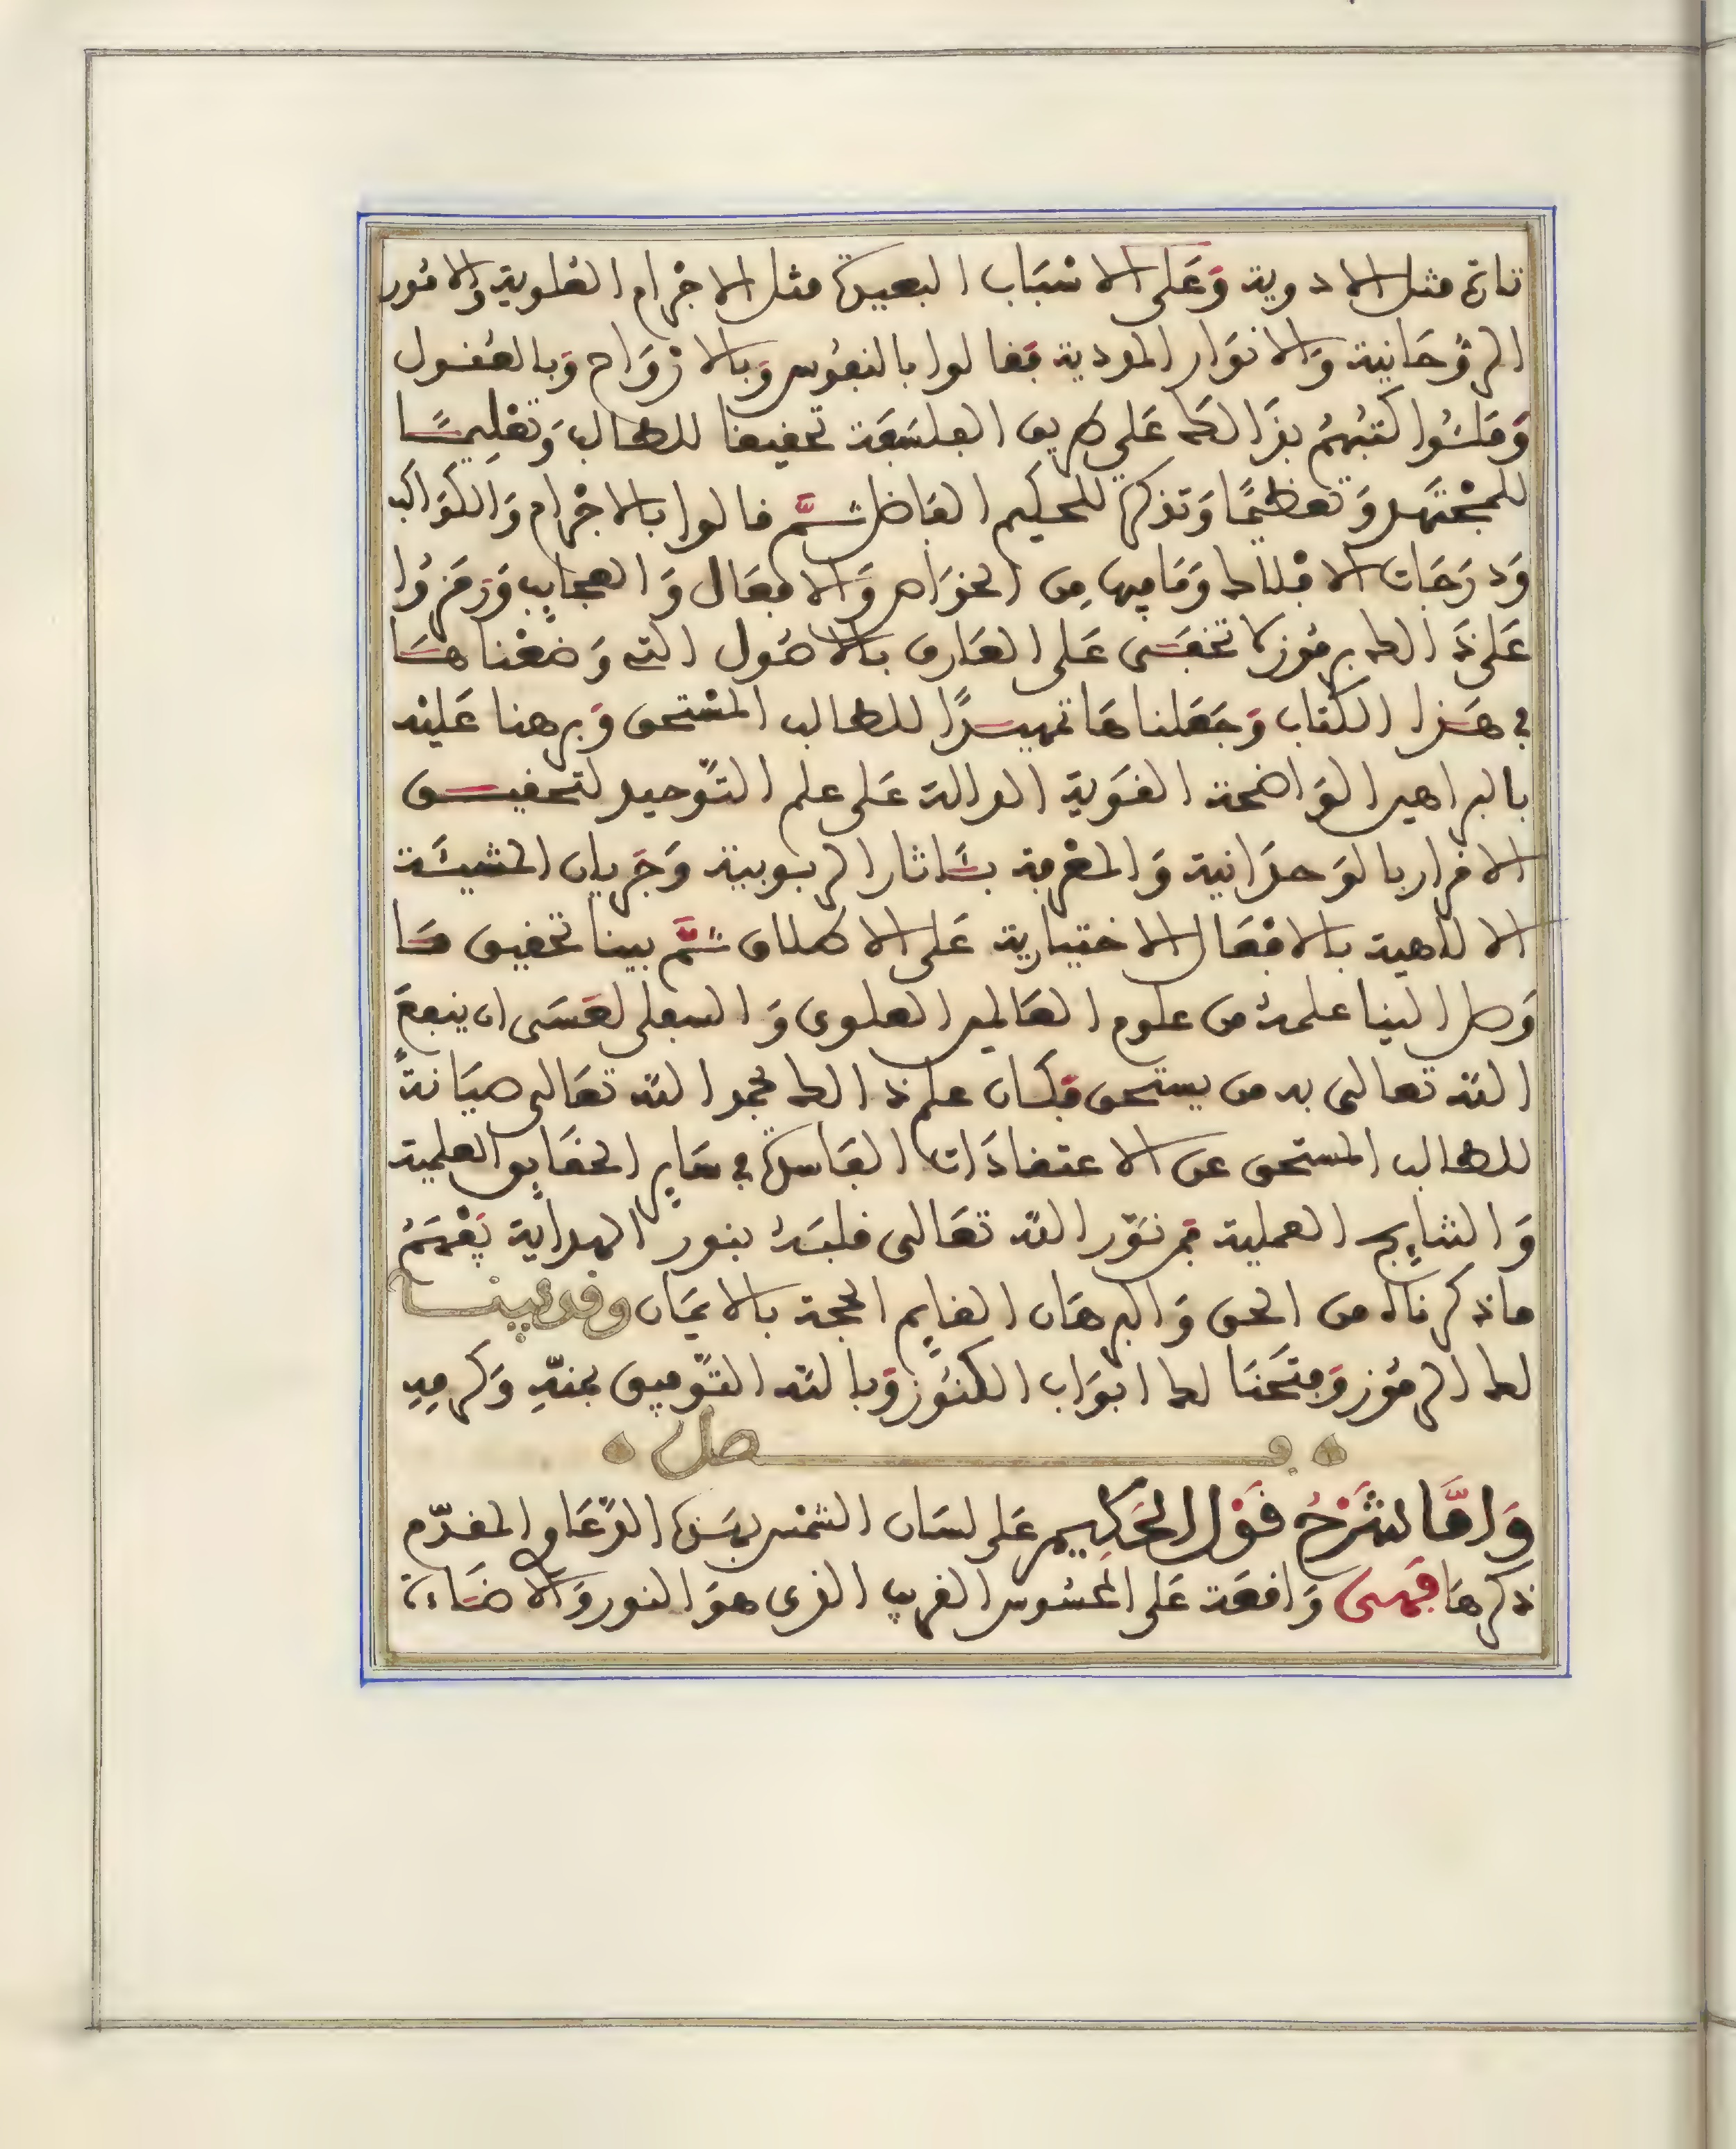 تارة مثل الادوية وَعَلى الاسْبَاب البعيدة مثل الاجْرام العُلوية والامُور
الرُّوحَانية وَالانوَار المودية فقالوا بالنفُوس وَبالارْوَاح وَبالعُقول
وَملئُوا كتبهُمُ بذَالك عَلى طريق الفلسَفَة تحقيقا للطالب وَتعْلِيمًا
للمجْتهد وَتعظيمًا وَتذكرة للحكيم الفاضل ثمَّ قالوا بالاجْرام وَالكوَاكب
وَدرَجَات الافْلاك وَمَا فيها مِن الخوَاص وَالافعَال وَالعجايب وَرَمَزُوا
عَلى ذَالك برمُوز لا تخفَى عَلى العَارف بالاصُول التي وَضعْناهَا
في هَذا الكتاب وَجَعَلناهَا تمهيدًا للطالب المسْتحق وَبرهنا عَليْه
بالبراهين الوَاضحة القوَية الدالة عَلى علم التوّحيد لتحقيق
الاقرار بالوَحدَانية وَالمعْرفة بئَاثار الربوبية وَجَريان المشيئَة
الالاهية بالافعَال الاختيارية عَلى الاطلاق ثمَّ بينا تحقيق مَا
وَصل الينا علمهُ من علوم العَالمين العلوى وَالسفلى لعَسَى ان ينفعَ
اللّه تعالى به من يستحق فكان علم ذالك بحمد اللّه تعَالى صيَانةً
للطالب المستحق عن الاعتقادَات الفَاسدة في سَاير الحقَايق العلمية
وَالنتايج العملية فمن نوّر اللّه تعَالى قلبَهُ بنور الهداية يَفْهَمُ
ماذكرناه من الحق وَالبرهَان القايم الحجة بالايمَان وقد بينا
لك الرمُوز وَفتَحنَا لك ابوَاب الكنوُز وَباللّه التوّفيق بمنهِ وَكرمِهِ
فصل
وَامَّا شَرْحُ قوْل الحَكِيم عَلى لسَان الشمْس بهَذه الدّعَاوِ المقدّم
ذكرهَا فهى وَاقعَة عَلى المحسُوس القريب الذى هوَ النور وَالاضَاءة